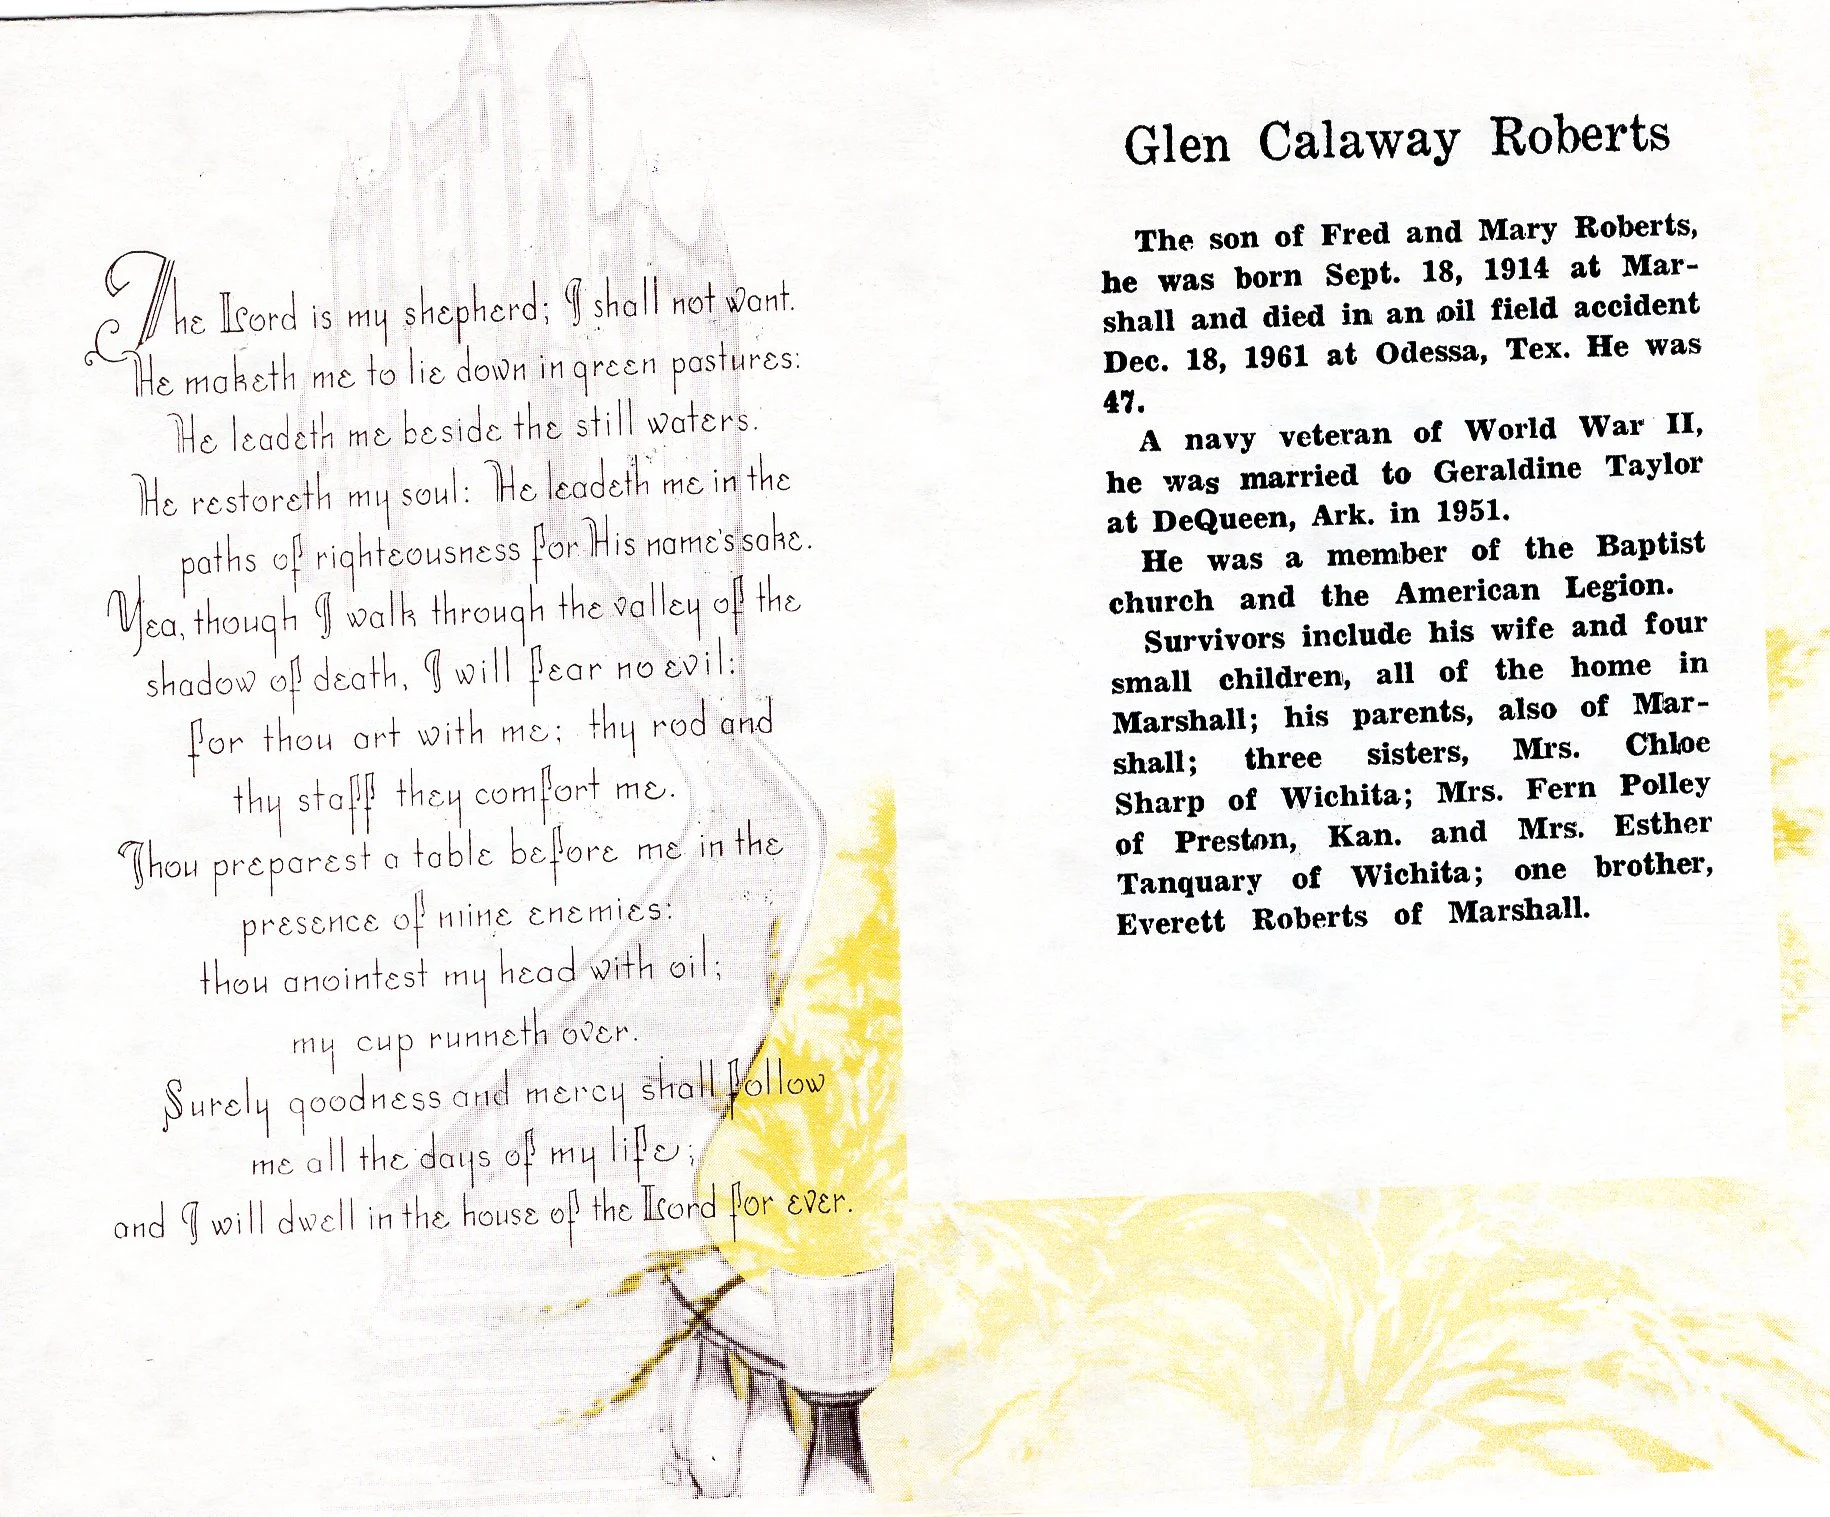 The Lord is my shepherd; I shall not want.
He maketh me to lie down in green pastures:
He leadeth me beside the still waters.
He restoreth my soul: He leadeth me in the
paths of righteousness for His name's sake.
Yea, though I walk through the valley of the
shadow of death, I will fear no evil:
for thou art with me; thy rod and
thy staff they comfort me.
Thou preparest a table before me in the
presence of mine enemies:
thou anointest my head with oil;
my cup runneth over.
Surely goodness and mercy shall follow
me all the days of my life;
and I will dwell in the house of the Lord for ever.
Glen Calaway Roberts
The son of Fred and Mary Roberts,
he was born Sept. 18, 1914 at Mar-
shall and died in an oil field accident
Dec. 18, 1961 at Odessa, Tex. He was
47.
A navy veteran of World War II,
he was married to Geraldine Taylor
at DeQueen, Ark. in 1951.
He was a member of the Baptist
church and the American Legion.
Survivors include his wife and four
small children, all of the home in
Marshall; his parents, also of Mar-
shall; three sisters, Mrs. Chloe
Sharp of Wichita; Mrs. Fern Polley
of Preston, Kan. and Mrs. Esther
Tanquary of Wichita; one brother,
Everett Roberts of Marshall.